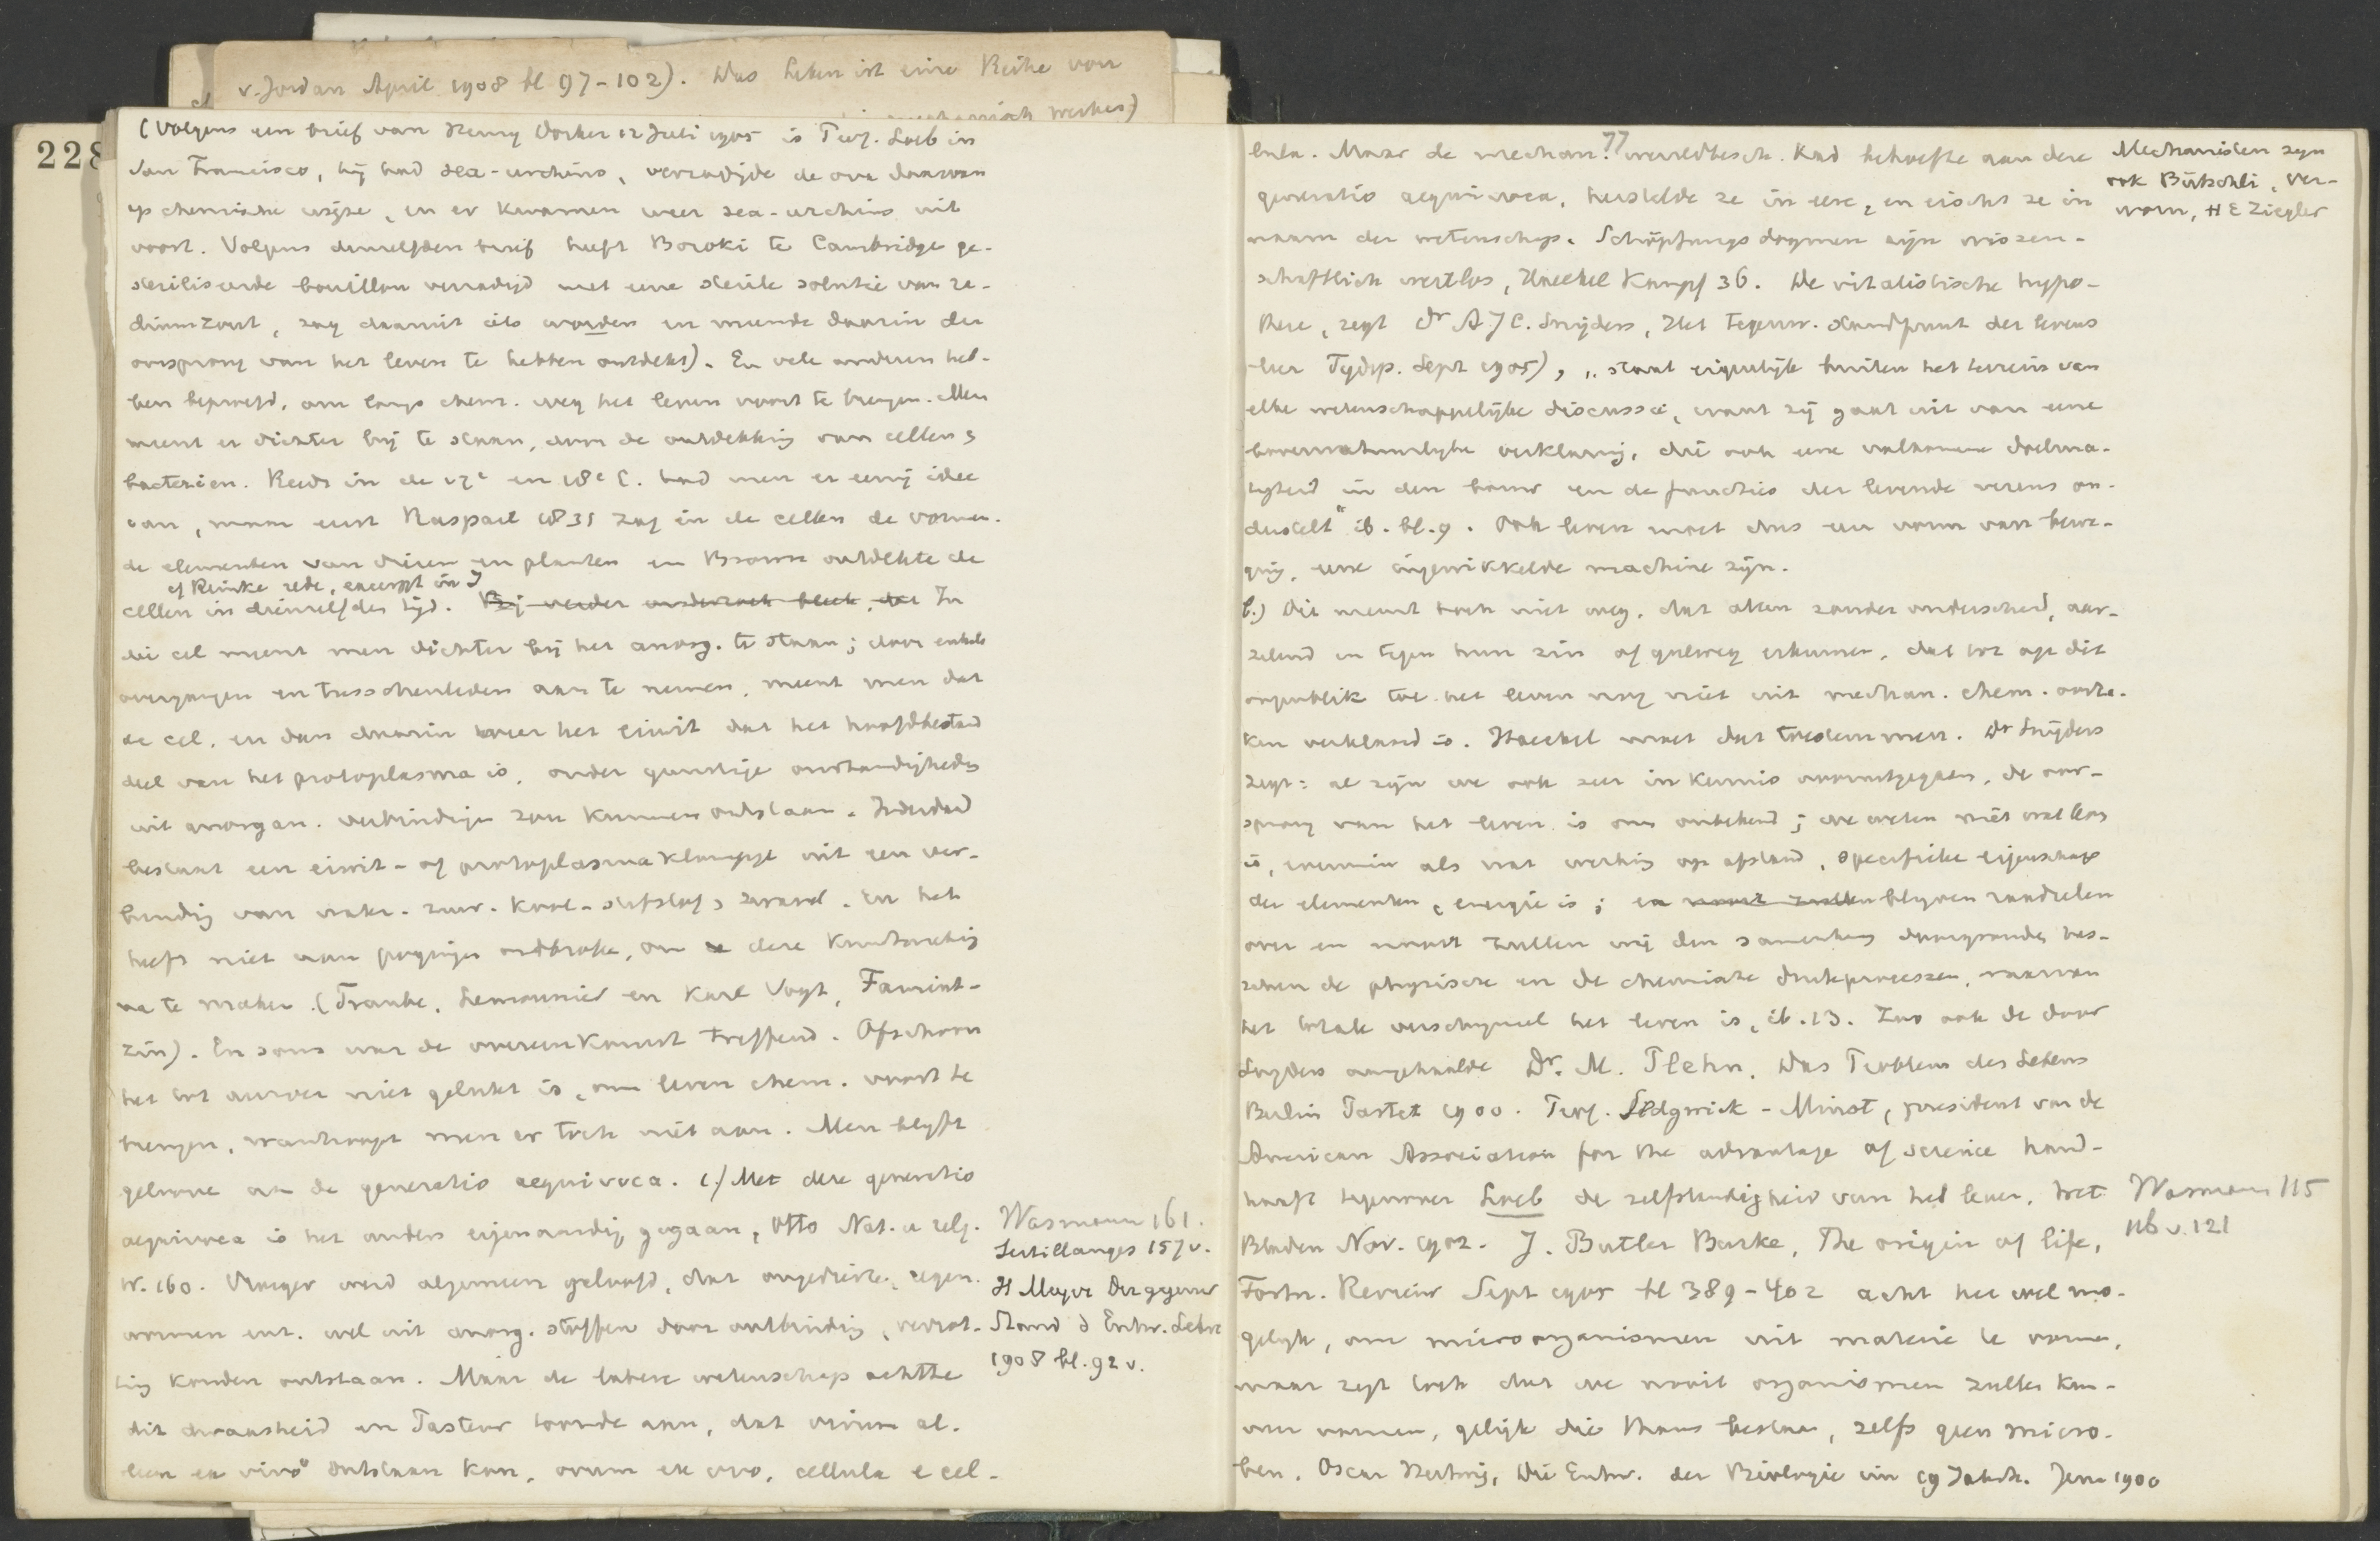 228
v. Jordan April 1908 bl 97-102). Das Leben ist eine Reihe von
(Volgens een brief van Henry Dosker 12 Juli 1905 is Prof. Loeb in
San Francisco, hij had sea-urchins, vernietigde de ova daarvan
op chemische wijze, en er kwamen weer sea-urchins uit
voort. Volgens denzelfden brief heeft Boroki te Cambridge ge-
steriliseerde bouillon verzadigd met eene steriele solutie van ra-
diumzout, zag daaruit iets worden en meende daarin den
oorsprong van het leven te hebben ontdekt). En vele anderen heb-
ben beproefd, om langs chem. weg het leven voort te brengen. Men
meent er dichter bij te staan, door de ontdekking van cellen &
bacteriën. Reeds in de 17e en 18e C. had men er eenig idee
van, maar eerst Raspail 1835 zag in de cellen de vormen-
de elementen van dieren en planten en Brown ontdekte de
cf Reinke rede, excerpt in J
cellen in diezelfden tijd. Bij verder onderzoek bleek, dat In
die cel meent men dichter bij het anorg. te staan; door enkele
overgangen en tusschenleden aan te nemen, meent men dat
de cel, en dan daarin weer het eiwit dat het hoofdbestand
deel van het protoplasma is, onder gunstige omstandigheden
uit anorgan. verbindingen zou kunnen ontstaan. Inderdaad
bestaat een eiwit- of protoplasmaklompje uit een ver-
binding van water- zuur- kool- stikstof & zwavel. En het
heeft niet aan pogingen ontbroken, om deze kunstmatig
na te maken. (Traube, Lemonnier en Karl Vogt, Famint-
zin). En soms was de overeenkomst treffend. Ofschoon
het tot nu toe niet gelukt is, om leven chem. voort te
brengen, wanhoopt men er toch niet aan. Men blijft
gelooven aan de generatio aequivoca. c.) Met deze generatio
aequivoca is het anders eigenaardig gegaan, Otto Nat. u relig.
W. 160. Vroeger werd algemeen geloofd, dat ongedierte, regen-
wormen enz. wel uit anorg. stoffen door ontbinding, verrot-
ting konden ontstaan. Maar de latere wetenschap achtte
dit dwaasheid en Pasteur toonde aan, dat vivum al-
leen ex vivo ontstaan kan, ovum ex ovo, cellula e cel-
Wasmann 161.
Sertillanges 157 v.
H Meyer Der gegenw
Stand d Entw. Lehre
1908 bl. 92 v.
77
lula. Maar de mechan. wereldbesch. had behoefte aan deze
generatio aequivoca, herstelde ze in eere, en eischt ze in
naam der wetenschap. Schöpfungsdogmen zijn wissen-
schaftlich wertlos, Haeckel Kampf 36. De vitalistische hypo-
these, zegt Dr A J C. Snijders, Het tegenw. standpunt der levens
leer Tijdsp. Sept 1905), "staat eigenlijk buiten het terrein van
elke wetenschappelijke discussie, want zij gaat uit van eene
bovennatuurlijke verklaring, die ook eene volkomene doelma-
tigheid in den bouw en de functies der levende wezens on-
derstelt" ib. bl. 9. Ook leven moet dus een vorm van bewe-
ging, eene ingewikkelde machine zijn.
b.) Dit neemt toch niet weg, dat allen zonder onderscheid, aar-
zelend en tegen hun zin of gulweg erkennen, dat tot op dit
oogenblik toe het leven nog niet uit mechan. chem. oorza-
ken verklaard is. Haeckel moet dat toestemmen. Dr Snijders
zegt: al zijn we ook zeer in kennis vooruitgegaan, de oor-
sprong van het leven is ons onbekend; we weten niet wat leven
is, evenmin als wat werking op afstand, specifieke eigenschap
der elementen, energie is; en nooit zullen blijven raadselen
over en nooit zullen wij den samenhang doorgronden tus-
schen de physische en de chemische deelprocessen, waarvan
het totale verschijnsel het leven is, ib. 13. Zoo ook de door
Snyders aangehaalde Dr. M. Plehn, Das Problem des Lebens
Berlin Pastet 1900. Prof. Sedgwick-Minot, president van de
American Association for the advantage of science hand-
haaft tegenover Loeb de zelfstandigheid van het leven. Wet.
Bladen Nov. 1902. J. Butler Burke, The origin of life,
Fortn. Review Sept 1905 bl 389-402 acht het wel mo-
gelijk, om microorganismen uit materie te vormen,
maar zegt toch dat we nooit organismen zullen kun-
nen vormen, gelijk die thans bestaan, zelfs geen micro-
ben. Oscar Hertwig, Die Entw. der Biologie im 19 Jahrh. Jena 1900
Mechanisten zijn
ook Bütschli, Ver-
worn, H E Ziegler
Wasmann 115
116 v. 121